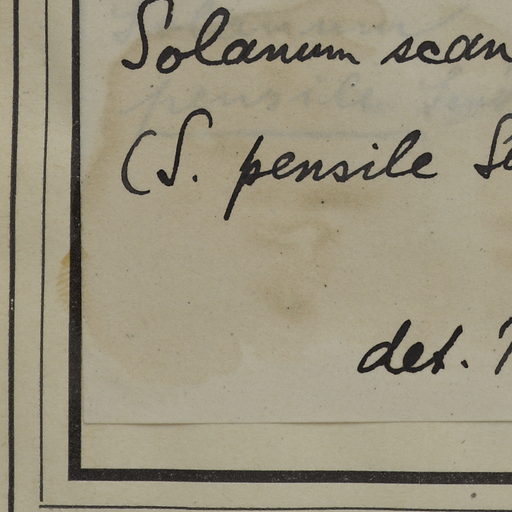 Solanum scan
(S. pensile Se
det.